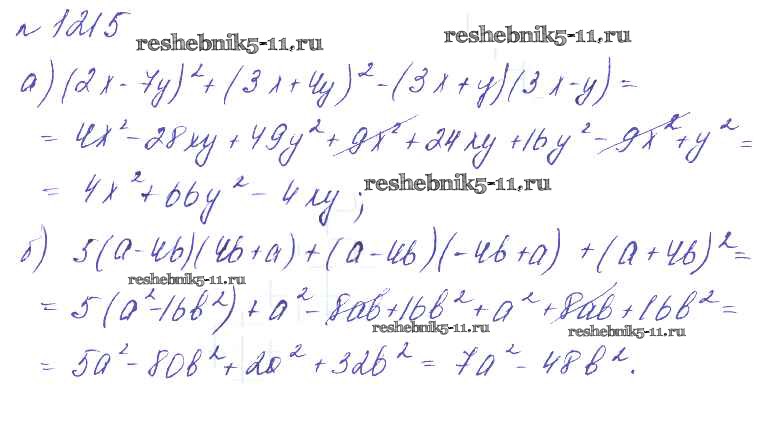 № 1215
reshebnik5-11.ru
reshebnik5-11.ru
а) (2x - 7y)² + (3x + 4y)² - (3x + y)(3x - y) =
= 4x² - 28xy + 49y² + 9x² + 24xy + 16y² - 9x² + y² =
= 4x² + 66y² - 4xy ;
reshebnik5-11.ru
б) 5(a - 4b)(4b + a) + (a - 4b)(-4b + a) + (a + 4b)² =
reshebnik5-11.ru
= 5(a² - 16b²) + a² - 8ab + 16b² + a² + 8ab + 16b² =
reshebnik5-11.ru
reshebnik5-11.ru
= 5a² - 80b² + 2a² + 32b² = 7a² - 48b².